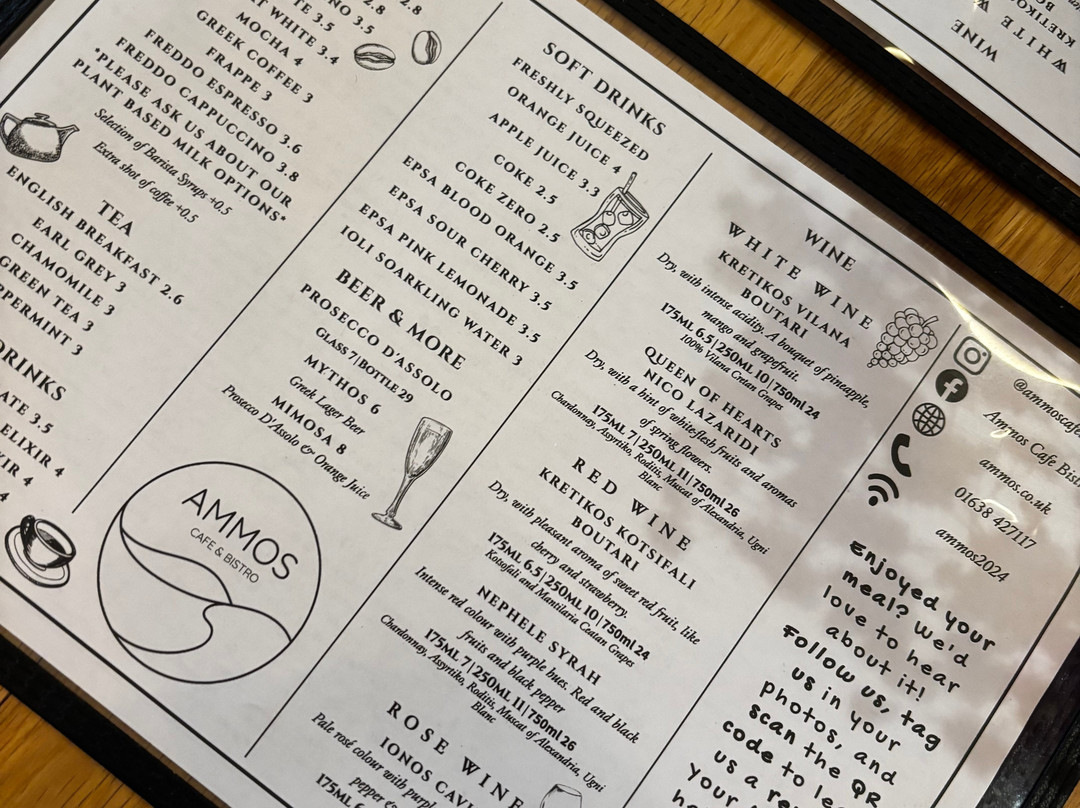 2.8
2.8
NO 3.5
TE 3.5
AT WHITE 3.4
MOCHA 4
GREEK COFFEE 3
FRAPPE 3
FREDDO ESPRESSO 3.6
FREDDO CAPPUCCINO 3.8
*PLEASE ASK US ABOUT OUR
PLANT BASED MILK OPTIONS*
Selection of Barista Syrups +0.5
Extra shot of coffee +0.5
TEA
ENGLISH BREAKFAST 2.6
EARL GREY 3
CHAMOMILE 3
GREEN TEA 3
PPERMINT 3
DRINKS
ATE 3.5
ELIXIR 4
XIR 4
4
AMMOS
CAFE & BISTRO
SOFT DRINKS
FRESHLY SQUEEZED
ORANGE JUICE 4
APPLE JUICE 3.3
COKE 2.5
COKE ZERO 2.5
EPSA BLOOD ORANGE 3.5
EPSA SOUR CHERRY 3.5
EPSA PINK LEMONADE 3.5
IOLI SOARKLING WATER 3
BEER & MORE
PROSECCO D'ASSOLO
GLASS 7|BOTTLE 29
MYTHOS 6
Greek Lager Beer
MIMOSA 8
Prosecco D'Assolo & Orange Juice
WINE
WHITE WINE
KRETIKOS VILANA
BOUTARI
Dry, with intense acidity. A bouquet of pineapple,
mango and grapefruit.
175ML 6.5|250ML 10|750ml 24
100% Vilana Cretan Grapes
QUEEN OF HEARTS
NICO LAZARIDI
Dry, with a hint of whiteflesh fruits and aromas
of spring flowers.
175ML 7|250ML 11|750ml 26
Chardonnay, Assyrtiko, Roditis, Muscat of Alexandria, Ugni
Blanc
RED WINE
KRETIKOS KOTSIFALI
BOUTARI
Dry, with pleasant aroma of sweet red fruit, like
cherry and strawberry.
175ML 6.5|250ML 10|750ml 24
Kotsofali and Mantilaria Ceatan Grapes
NEPHELE SYRAH
Intense red colour with purple hues. Red and black
fruits and black pepper
175ML 7|250ML 11|750ml 26
Chardonnay, Assyrtiko, Roditis, Muscat of Alexandria, Ugni
Blanc
ROSE WINE
IONOS CAVI
Pale rosé colour with purpl
pepper
175ML 6
@ammoscafe
Ammos Cafe Bist
ammos.co.uk
01638 427117
ammos2024
Enjoyed your
meal? We'd
love to hear
about it!
Follow us, tag
us in your
photos, and
scan the QR
code to le
us a re
your
WINE
WHITE W
KRETIKO
BO